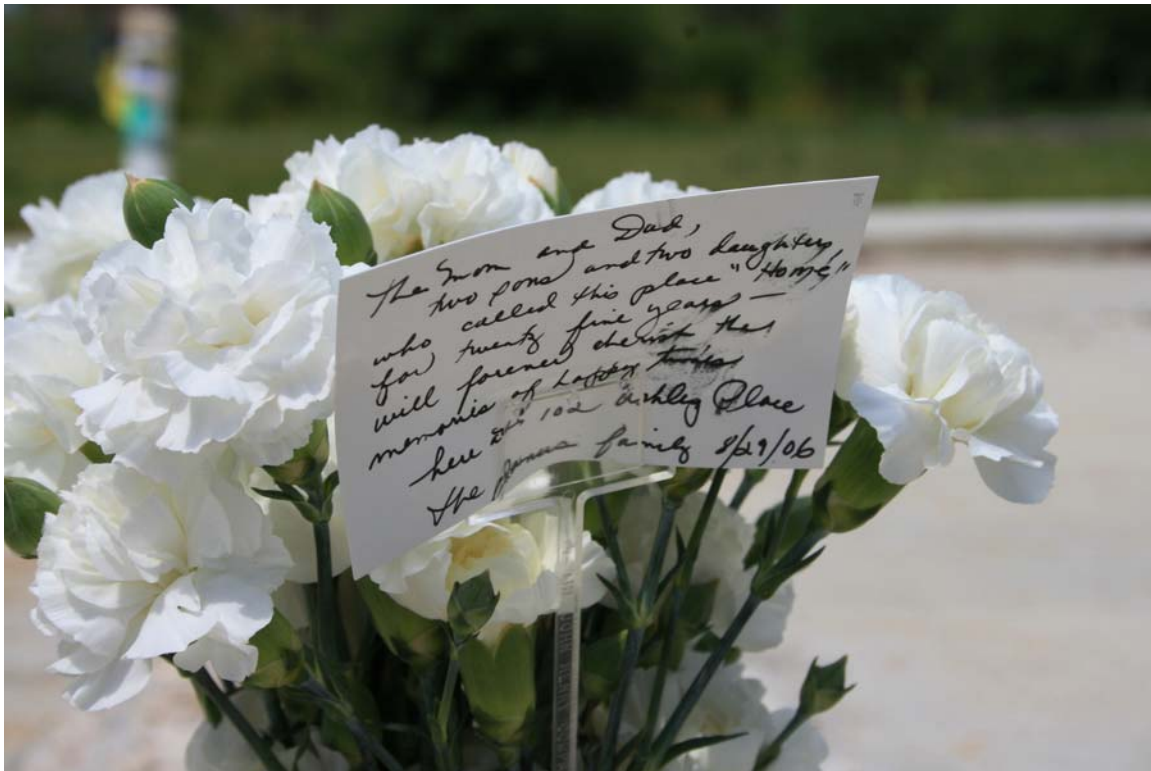 The Mom and Dad,
two sons and two daughters,
who called this place "Home"
for twenty five years —
will forever cherish the
memories of happy times
here at 102 Ashley Place
the family 8/29/06